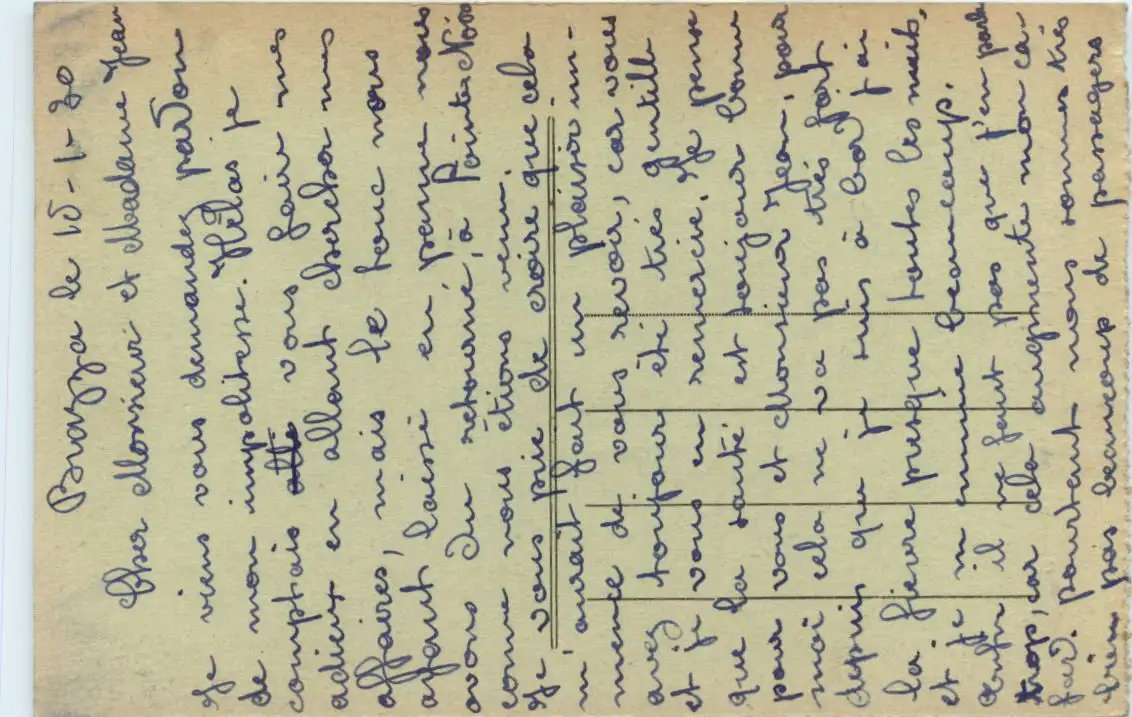 Brazza le 15-1-30
Cher Monsieur et Madame Jean
Je viens vous demander pardon
de mon impolitesse. Hélas je
comptais vous faire mes
adieux en allant chercher mes
affaires, mais le fonc nous
ayant laissé en panne nous
avons du retourné, à Pointe Noire
comme nous étions venu.
Je vous prie de croire que cela
m'aurait fait un plaisir im-
mence de vous revoir, car vous
avez toujour été très gentille
et je vous en remercie. Je pense
que la santé est toujour bonne
pour vous et Monsieur Jean, pour
moi cela ne va pas très fort
depuis que je suis à bord j'ai
la fievre presque toutes les nuits,
et je m'ennuie beaucoup.
Enfin il ne faut pas que j'en parle
trop, car cela augmente mon ca-
fard. pourtant nous sommes très
bien pas beaucoup de passagers